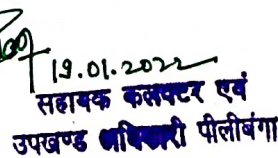 19.01.2022
सहायक कलक्टर एवं
उपखण्ड अधिकारी पीलीबंगा